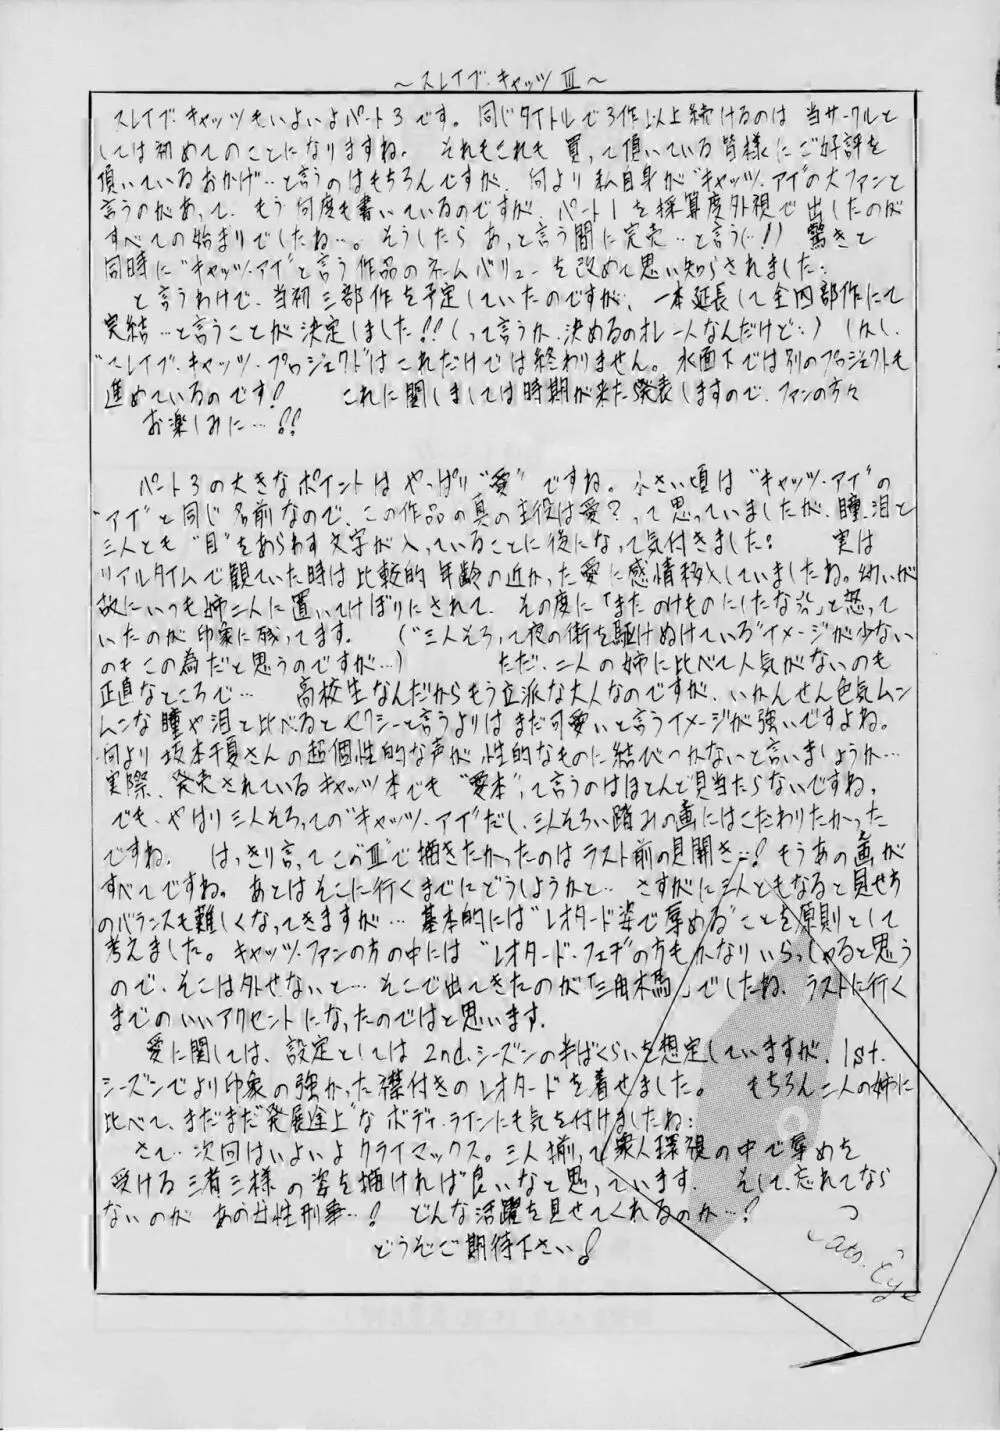 ～スレイブ・キャッツⅢ～
スレイブ・キャッツもいよいよパート3です。同じタイトルで3作以上続けるのは当サークルと
しては初めてのことになりますね。それもこれも買って頂いている皆様にご好評を
頂いているおかげ…と言うのはもちろんですが、何より私自身が“キャッツ・アイ”の大ファンと
言うのがあって、もう何度も書いているのですが、パート1を採算度外視で出したのが
すべての始まりでしたね…。そうしたらあっと言う間に完売…と言う(…!)驚きと
同時に“キャッツ・アイ”と言う作品のネームバリューを改めて思い知らされました…
と言うわけで、当初三部作を予定していたのですが、一本延長して全四部作にて
完結…と言うことが決定しました!!(って言うか、決めるのオレ一人なんだけど…)しかし、
“スレイブ・キャッツ・プロジェクト”はこれだけでは終わりません。水面下では別のプロジェクトも
進めているのです!これに関しましては時期が来た発表しますので、ファンの方々
お楽しみに…!!
パート3の大きなポイントはやっぱり“愛”ですね。小さい頃は“キャッツ・アイ”の
“アイ”と同じ名前なので、この作品の真の主役は愛?って思っていましたが、瞳、泪と
三人とも“目”をあらわす文字が入っていることに後になって気付きました…実は
リアルタイムで観ていた時は比較的年齢の近かった愛に感情移入していましたね。幼いが
故にいつも姉二人に置いてけぼりにされて、その度に「またのけものにしたな」と怒って
いたのが印象に残ってます。(“三人そろって夜の街を駆けぬけている”イメージが少ない
のもこの為だと思うのですが…)ただ、二人の姉に比べて人気がないのも
正直なところで…高校生なんだからもう立派な大人なのですが、いかんせん色気ムン
ムンな瞳や泪と比べるとセクシーと言うよりはまだ可愛いと言うイメージが強いですよね。
何より坂本千夏さんの超個性的な声が性的なものに結びつかないと言いましょうか…
実際、発売されているキャッツ本でも“愛本”って言うのはほとんど見当たらないですね。
でも、やはり三人そろっての“キャッツ・アイ”だし、三人そろい踏みの画にはこだわりたかった
ですね。はっきり言ってこの“Ⅲ”で描きたかったのはラスト前の見開き…!もうあの画が
すべてですね。あとはそこに行くまでにどうしようかと…さすがに三人ともなると見せ方
のバランスも難しくなってきますが…基本的には“レオタード姿で辱める”ことを原則として
考えました。キャッツ・ファンの方の中には“レオタード・フェチ”の方もかなりいらっしゃると思う
ので、そこは外せないと…そこで出てきたのが「三角木馬」でしたね、ラストに行く
までのいいアクセントになったのではと思います。
愛に関しては、設定としては2nd.シーズンの半ばくらいを想定していますが、1st.
シーズンでより印象の強かった襟付きのレオタードを着せました。もちろん二人の姉に
比べて、まだまだ“発展途上”なボディ・ラインにも気を付けましたね…
さて…次回はいよいよクライマックス。三人揃って衆人環視の中で辱めを
受ける三者三様の姿を描ければ良いなと思っています。そして、忘れてなら
ないのがあの女性刑事…!どんな活躍を見せてくれるのか…?
どうぞご期待下さい!
Cats.Eye